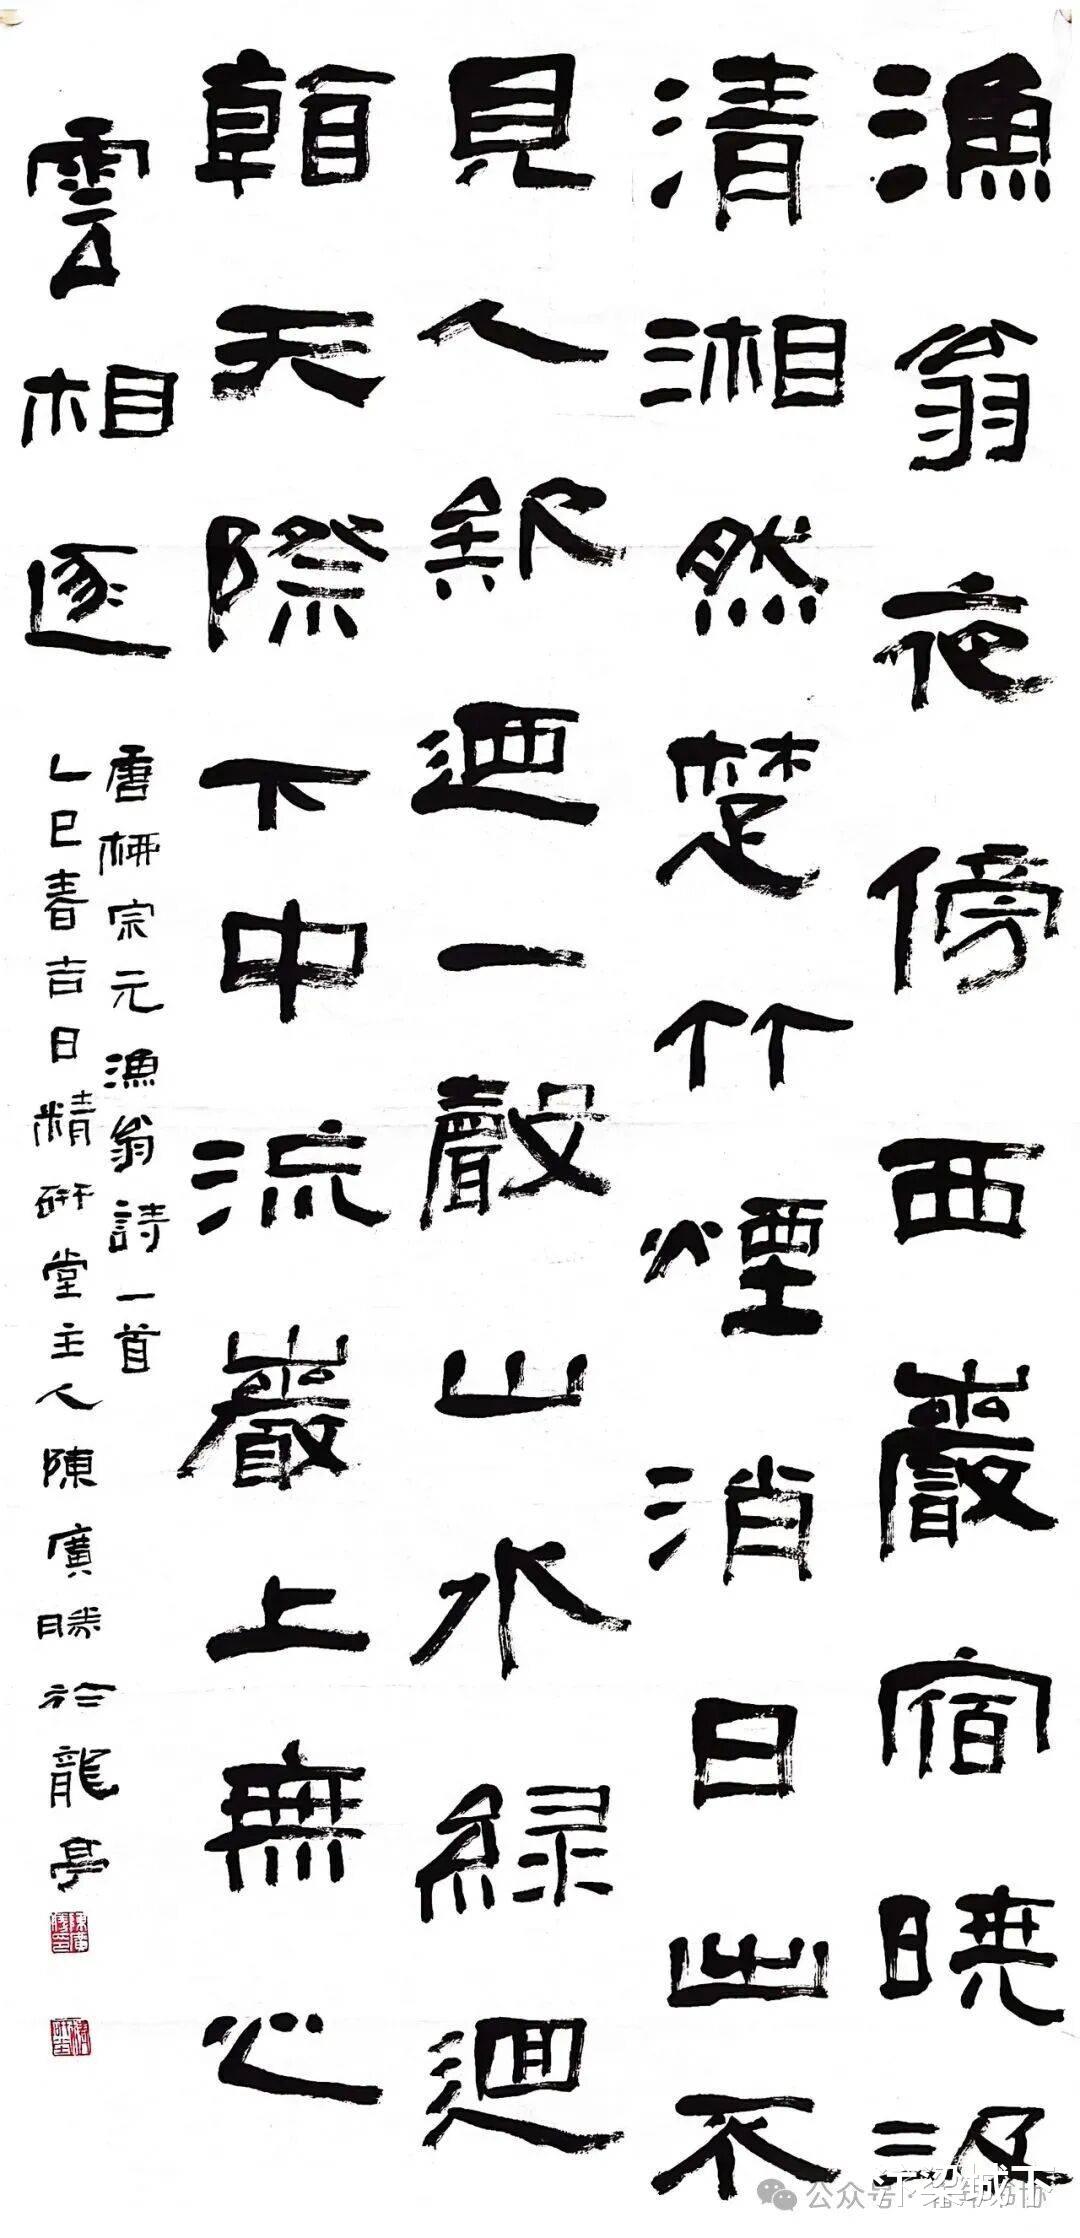 漁翁夜傍西巖宿曉汲
清湘然楚竹煙消日出不
見人欸迺一聲山水綠迴
看天際下中流巖上無心
雲相逐
唐柳宗元漁翁詩一首
乙巳春吉日精研堂主人陳廣勝於龍亭
陳廣勝印
公众号